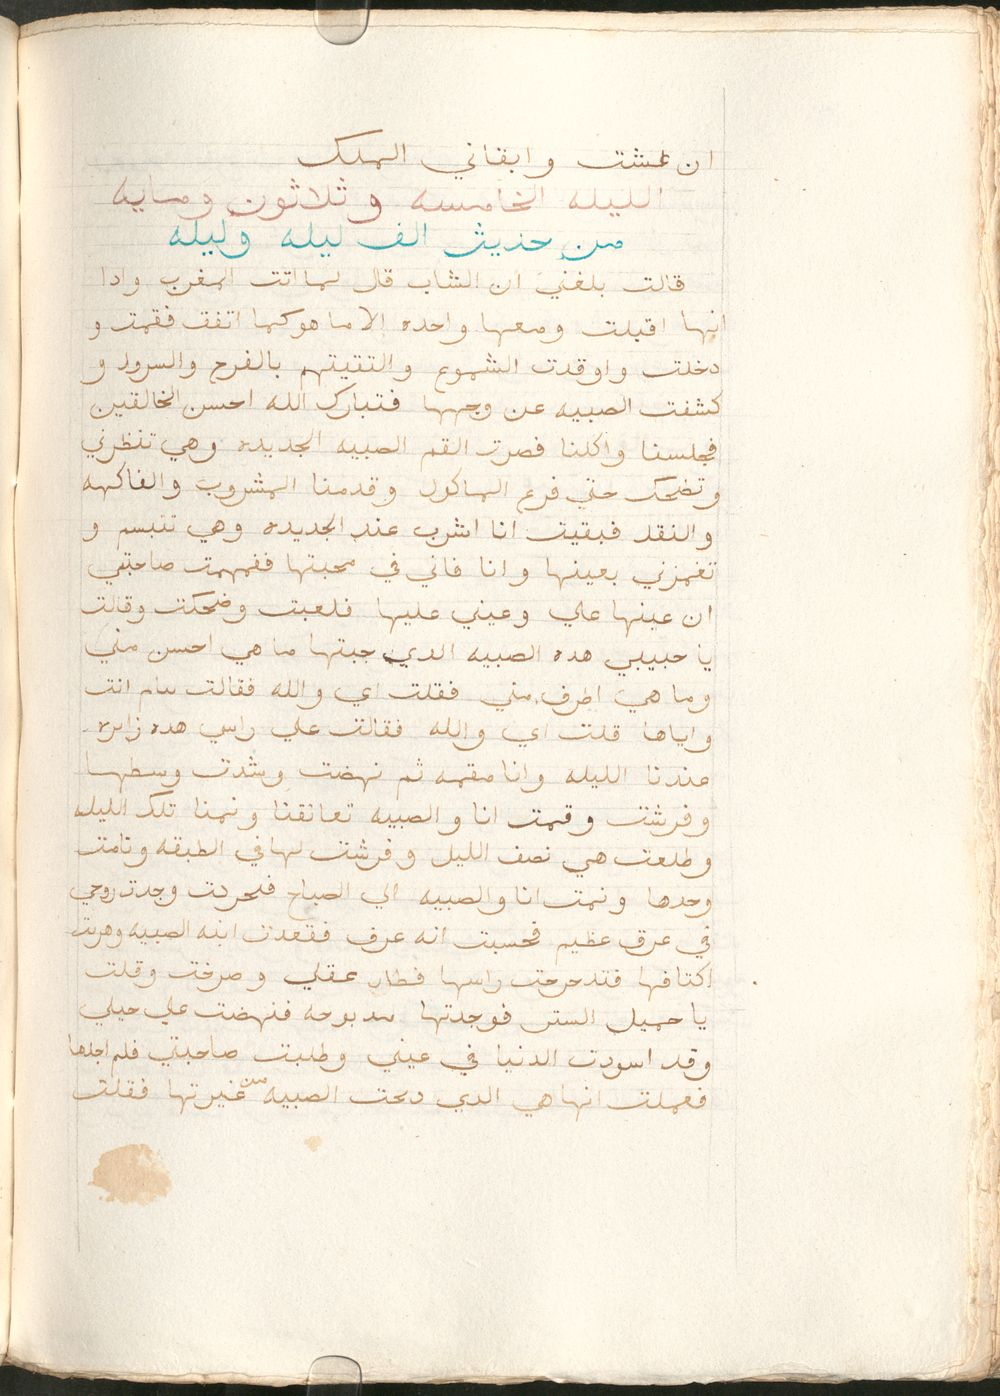 ان عشت وابقاني الملك
الليله الخامسه وثلاثون ومايه
من حديث الف ليله وليله
قالت بلغني ان الشاب قال لما اتت المغرب وادا
انها اقبلت ومعها واحده الا ما هو كما اتفق فقمت و
دخلت واوقدت الشموع والتقيتهم بالفرح والسرور و
كشفت الصبيه عن وجهها فتبارك الله احسن الخالقين
فجلسنا واكلنا فصرت القم الصبيه الجديده وهي تنظرني
وتضحك حتي فرغ الماكول وقدمنا المشروب والفاكهه
والنقد فبقيت انا اشرب عند الجديده وهي تتبسم و
تغمزني بعينها وانا فاني في محبتها ففهمت صاحبتي
ان عينها علي وعيني عليها فلعبت وضحكت وقالت
يا حبيبي هده الصبيه الدي جبتها ما هي احسن مني
وما هي اظرف مني فقلت اي والله فقالت تنام انت
واياها قلت اي والله فقالت علي راسي هده زايره
عندنا الليله وانا مقمه ثم نهضت وشدت وسطها
وفرشت وقمت انا والصبيه تعانقنا ونمنا تلك الليله
وطلعت هي نصف الليل وفرشت لها في الطبقه ونامت
وحدها ونمت انا والصبيه الي الصباح فلحردت وجدت روحي
في عرق عظيم فحسبت انه عرف فقعدت انبه الصبيه وهريت
اكتافها فتدحرجت راسها فطار عقلي وصرخت وقلت
يا جميل الستر فوجدتها مدبوحه فنهضت علي حيلي
وقد اسودت الدنيا في عيني وطلبت صاحبتي فلم اجدها
فعملت انها هي الدي دبحت الصبيه من غيرتها فقلت